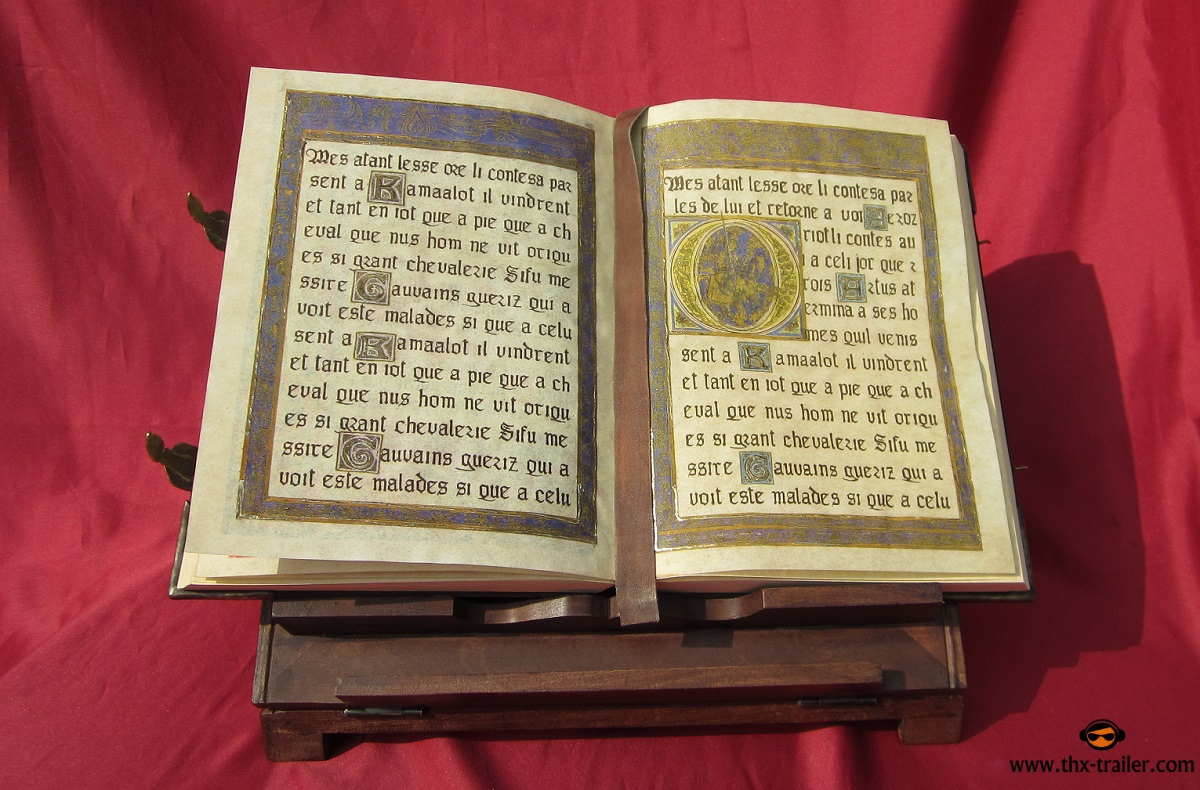 Mes atant lesse ore li contesa par
sent a Kamaalot il vindrent
et tant en iot que a pie que a ch
eval que nus hom ne vit oriqu
es si grant chevalerie Sifu me
ssire Gauvains queriz qui a
voit este malades si que a celu
sent a Kamaalot il vindrent
et tant en iot que a pie que a ch
eval que nus hom ne vit oriqu
es si grant chevalerie Sifu me
ssire Gauvains queriz qui a
voit este malades si que a celu
Mes atant lesse ore li contesa par
les de lui et retorne a voir
riotli contes au
a celi jor que r
rois Artus at
ermina a ses ho
mes quil venis
sent a Kamaalot il vindrent
et tant en iot que a pie que a ch
eval que nus hom ne vit oriqu
es si grant chevalerie Sifu me
ssire Gauvains queriz qui a
voit este malades si que a celu
www.thx-trailer.com